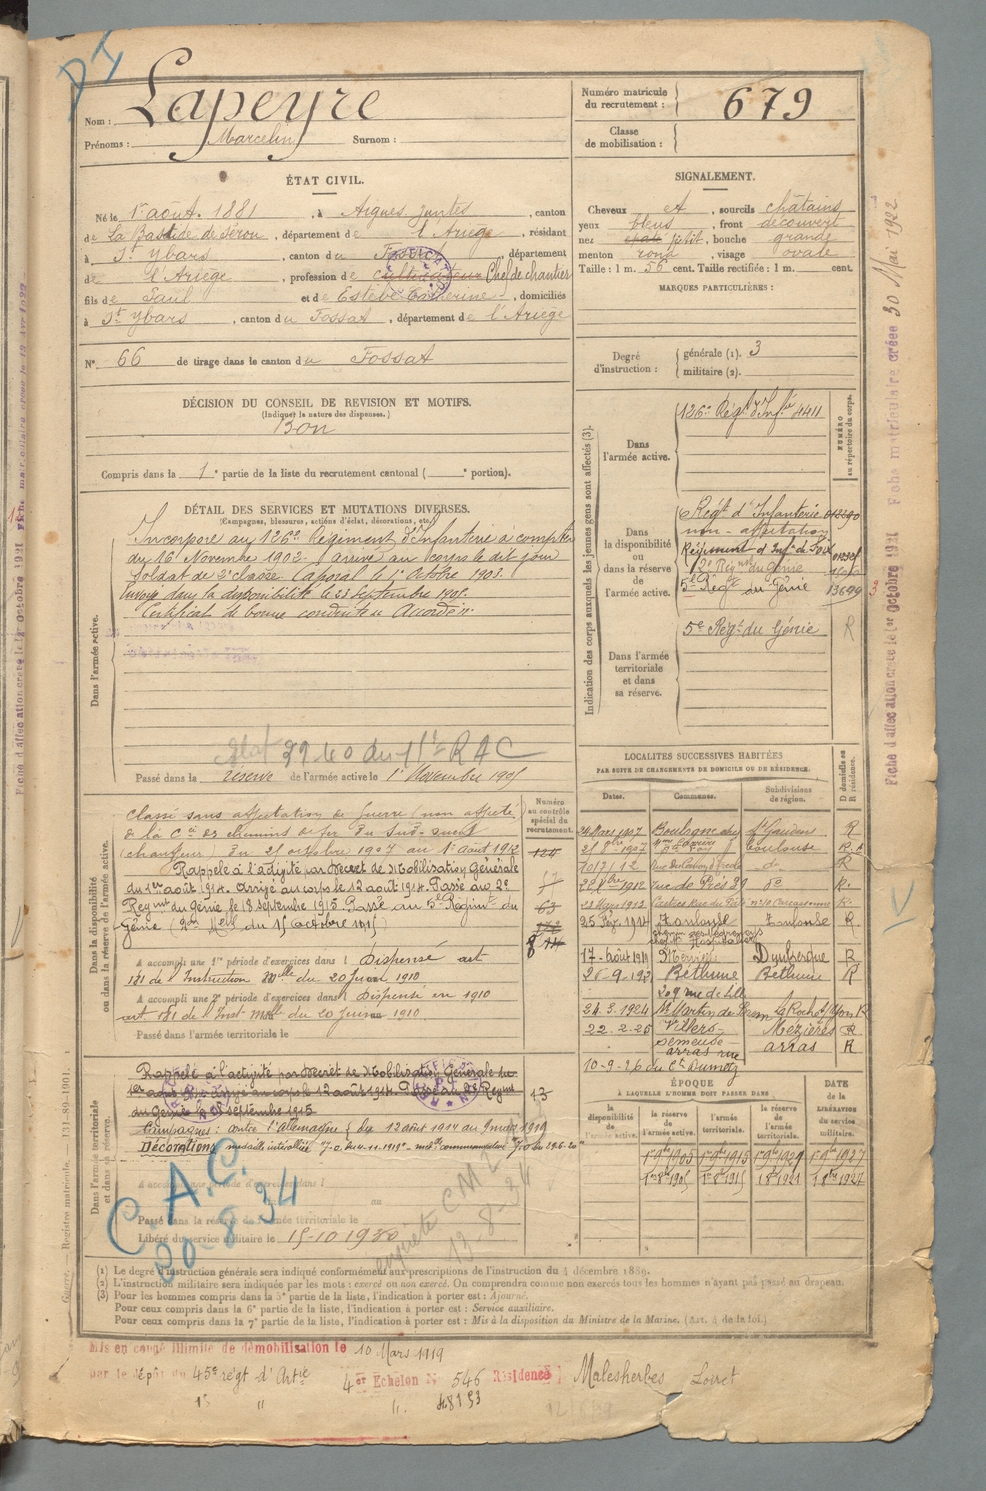 Nom : Lapeyre
Prénoms : Marcelin Surnom :
Numéro matricule
du recrutement : 679
Classe
de mobilisation :
ÉTAT CIVIL.
Né le 1er août 1881, à Aigues Juntes, canton
de La Bastide de Sérou, département de l'Ariège, résidant
à St Ybars, canton du Fossat, département
de l'Ariège, profession de cultivateur Chef de chantier
fils de Paul et de Estèbe Catherine, domiciliés
à St Ybars, canton du Fossat, département de l'Ariège
N° 66 de tirage dans le canton du Fossat
SIGNALEMENT.
Cheveux et, sourcils châtains
yeux bleus, front découvert
nez petit, bouche grande
menton rond, visage ovale
Taille : 1 m. 56 cent. Taille rectifiée : 1 m. cent.
MARQUES PARTICULIÈRES :
Degré
d'instruction :
générale (1). 3
militaire (2).
DÉCISION DU CONSEIL DE REVISION ET MOTIFS.
(Indiquer la nature des dispenses.)
Bon
Compris dans la 1e partie de la liste du recrutement cantonal ( e portion).
DÉTAIL DES SERVICES ET MUTATIONS DIVERSES.
(Campagnes, blessures, actions d'éclat, décorations, etc.)
Dans l'armée active.
Incorporé au 126e Régiment d'Infanterie à compter
du 16 Novembre 1902 arrivé au corps le dit jour
soldat de 2e classe. Caporal le 1er Octobre 1903.
Envoyé dans la disponibilité le 23 septembre 1905.
Certificat de bonne conduite « Accordé ».
Passé dans la réserve de l'armée active le 1er Novembre 1905
Indication des corps auxquels les jeunes gens sont affectés (3).
NUMÉRO
au répertoire du corps.
Dans
l'armée active.
126e Régt d'Infie 4411
Dans
la disponibilité
ou
dans la réserve
de
l'armée active.
Régt d'Infanterie
non-affectation
2e Régnt du Génie
5e Régt du Génie 13699
Dans l'armée
territoriale
et dans
sa réserve.
5e Régt du Génie R
LOCALITÉS SUCCESSIVES HABITÉES
PAR SUITE DE CHANGEMENTS DE DOMICILE OU DE RÉSIDENCE.
Dates. Communes. Subdivisions
de région. D domicile ou
R résidence.
24 Mars 1907 Boulogne St Gaudens R
1907 Toulouse
10/2/12 do R
1912 rue de do R.
Carcassonne R
25 1914 Toulouse Toulouse R.
17 Août 1919 Merville Dunkerque R
26-9-192 Béthune Béthune R
209 rue de Lille
24.3.1924 St Martin de La Roche s/ Yon R
22-2-25 Villers- Mézières R
Semeuse
arras rue arras R
10-9-26 du Ct Dumetz
Dans la disponibilité
ou dans la réserve de l'armée active.
Numéro
au contrôle
spécial du
recrutement.
Classé sans affectation de guerre (non affecté)
de la Cie des chemins de fer du Sud-ouest
(chauffeur) du 25 octobre 1907 au 1er août 1912
Rappelé à l'activité par Décret de Mobilisation Générale
du 1er août 1914. Arrivé au corps le 12 août 1914. Passé au 2e
Regmt du Génie le 18 septembre 1915. Passé au 5e Régimt du
Génie le 15 octobre 1915
A accompli une 1re période d'exercices dans l Dispensé art
181 de l'Instruction Melle du 20 Juin 1910
A accompli une 2e période d'exercices dans l Dispensé en 1910
art 181 de l'Inst Melle du 20 Juin 1910.
Passé dans l'armée territoriale le
Dans l'armée territoriale
et dans sa réserve.
Rappelé à l'activité par Décret de Mobilisation Générale du
1er août 1914. Arrivé au corps le 12 août 1914. Passé au 2e Regmt
du Génie le 18 septembre 1915
Campagnes : contre l'Allemagne du 12 août 1914 au 9 mars 1919
Décorations médaille interalliée
A accompli une période d'exercices dans l
du au
Passé dans la réserve de l'armée territoriale le
Libéré du service militaire le 15-10 1930
13
C.A.C.
20-8-34
enquête CM2
13-8-34
ÉPOQUE
À LAQUELLE L'HOMME DOIT PASSER DANS
la
disponibilité
de
l'armée active.
la réserve
de
l'armée active.
l'armée
territoriale.
la réserve
de l'armée
territoriale.
DATE
de la
LIBÉRATION
du service
militaire.
1er 9bre 1905 1er 9bre 1915 1er 9bre 1921 1er 9bre 1927
(1) Le degré d'instruction générale sera indiqué conformément aux prescriptions de l'instruction du 4 décembre 1889.
(2) L'instruction militaire sera indiquée par les mots : exercé ou non exercé. On comprendra comme non exercés tous les hommes n'ayant pas passé au drapeau.
(3) Pour les hommes compris dans la 5e partie de la liste, l'indication à porter est : Ajourné.
Pour ceux compris dans la 6e partie de la liste, l'indication à porter est : Service auxiliaire.
Pour ceux compris dans la 7e partie de la liste, l'indication à porter est : Mis à la disposition du Ministre de la Marine. (Art. 4 de la loi.)
Mis en congé illimité de démobilisation le 10 Mars 1919
par le dépôt du 45e régt d'Artie 4er Echelon N° 546 Résidence Malesherbes Loiret
15 " " 48153
Fiche d'affectation créée le 1er Octobre 1921 Fiche matriculaire créée 30 Mai 1922